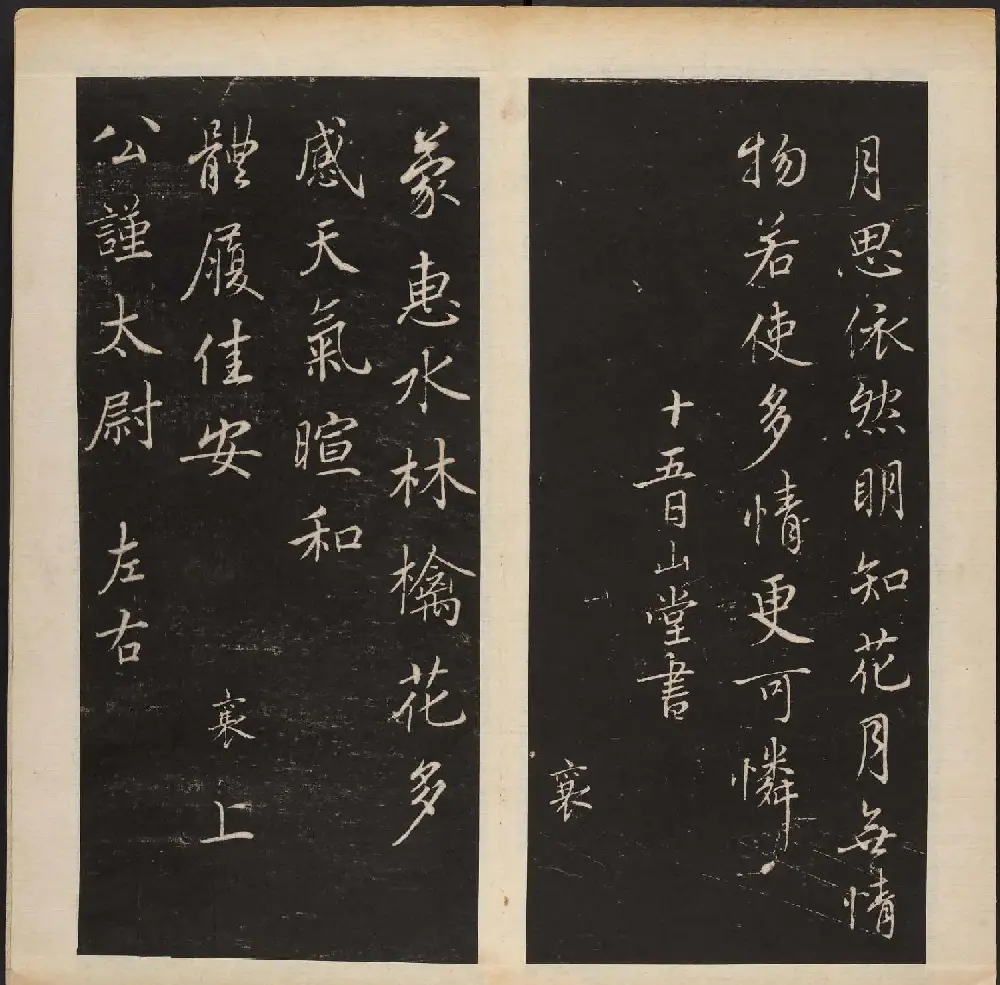 月思依然明知花月無情
物若使多情更可憐
十五日山堂書
襄
蒙惠水林檎花多
感天氣暄和
體履佳安
襄上
公謹太尉 左右